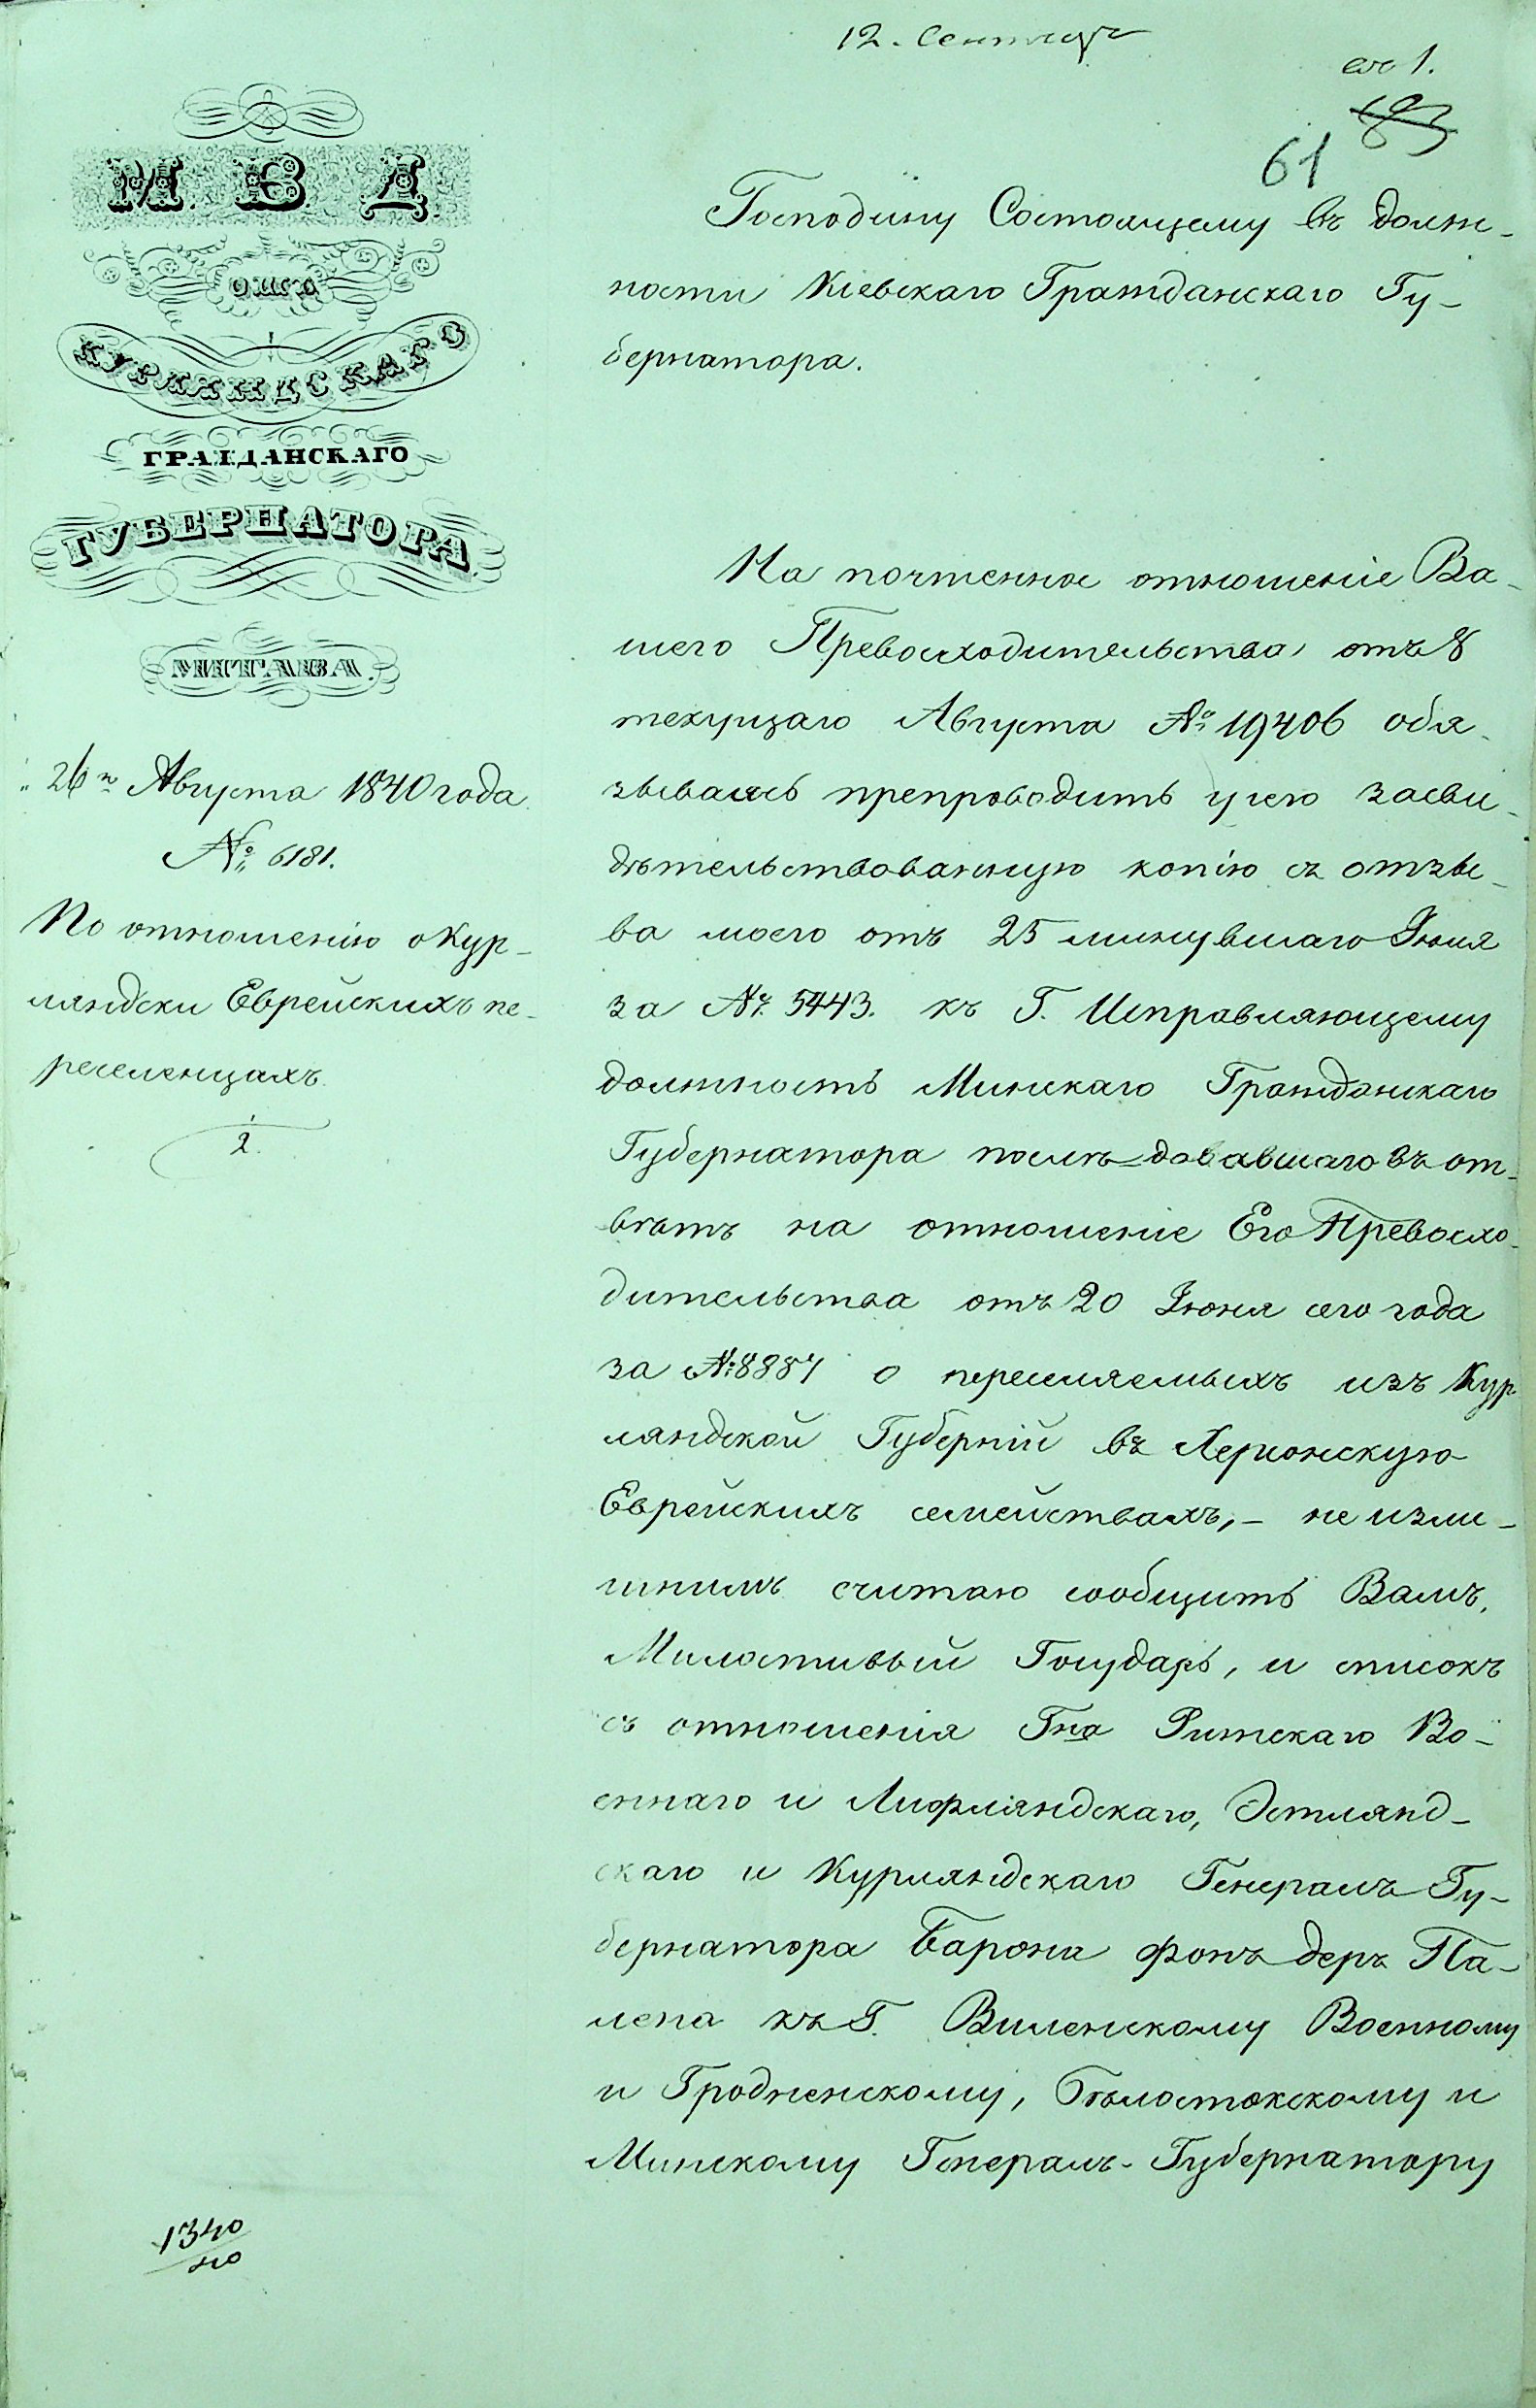 12. Сентября
61
М. В. Д.
ОТЪ
КУРЛЯНДСКАГО
ГРАЖДАНСКАГО
ГУБЕРНАТОРА
МИТАВА.
26го Августа 1840 года
№ 6181.
По отношенію о Кур-
ляндски Еврейскихъ пе-
реселенцахъ.
2.
1340
Господину Состоящему въ долж-
ности Кіевскаго Гражданскаго Гу-
бернатора.
На почтенное отношеніе Ва-
шего Превосходительства отъ 8
текущаго Августа № 19406 обя-
зываюсь препроводить у сего засви-
дѣтельствованную копію съ отзы-
ва моего отъ 25 минувшаго Іюня
за № 5443. къ Г. Исправляющему
должность Минскаго Гражданскаго
Губернатора послѣдовавшаго въ от-
вѣтъ на отношеніе Его Превосхо-
дительства отъ 20 Іюня сего года
за № 8887 о переселяемыхъ изъ Кур
ляндской Губерній въ Херсонскую
Еврейскихъ семействахъ, - не изли-
шнимъ считаю сообщить Вамъ,
Милостивый Государь, и списокъ
съ отношенія Гна Рижскаго Во-
еннаго и Лифляндскаго, Эстлянд-
скаго и Курляндскаго Генералъ Гу-
бернатора Барона фонъ деръ Па-
лена къ Г. Виленскому Военному
и Гродненскому, Бѣлостокскому и
Минскому Генералъ-Губернатору